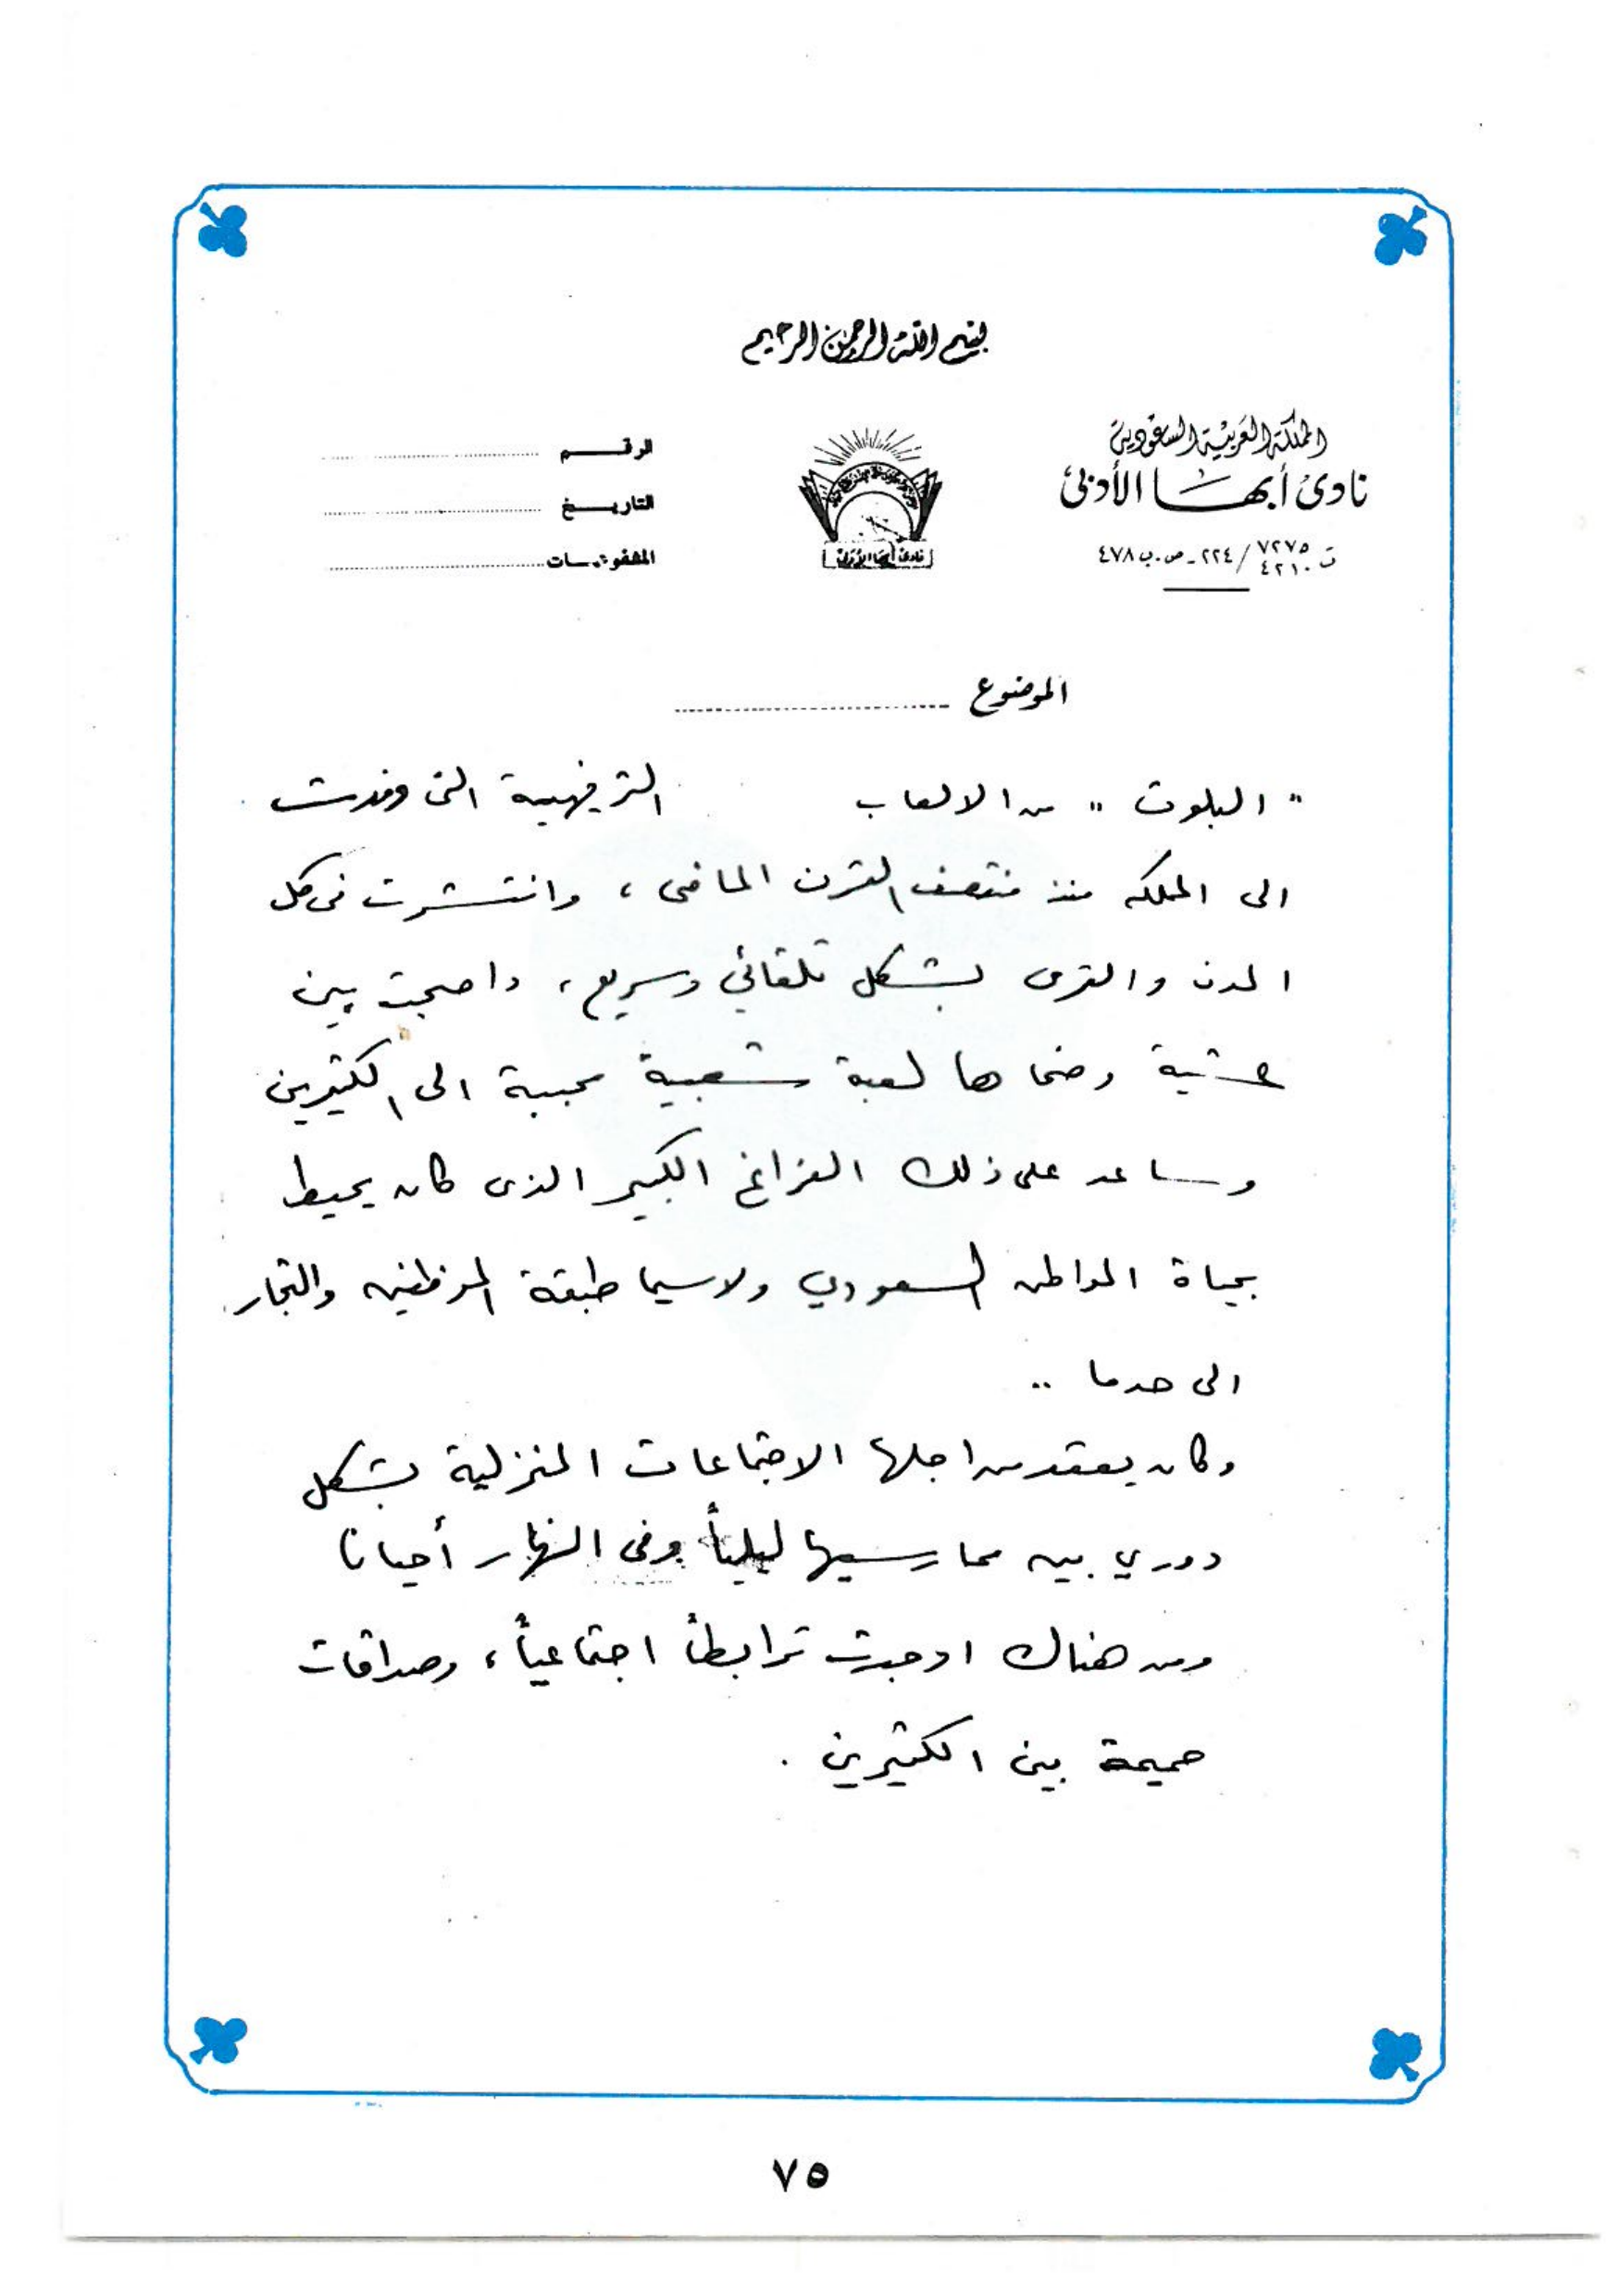 بسم الله الرحمن الرحيم
المملكة العربية السعودية
نادي أبها الأدبي
ت ٧٢٧٥ / ٤٢١٠ / ٢٢٤ - ص.ب ٤٧٨
نادي أبها الأدبي
الرقم
التاريخ
المشفوعات
الموضوع
" البلوت " من الالعاب الترفيهية التى وفدت
الى المملكه منذ منتصف القرن الماضى ، وانتشرت فى كل
المدن والقرى بشكل تلقائي وسريع ، واصبحت بين
عشية وضحاها لعبة شعبية محببة الى الكثيرين
وساعد على ذلك الفراغ الكبير الذى كان يحيط
بحياة المواطن السعودي ولاسيما طبقة الموظفين والتجار
الى حد ما ..
وكان يعقد من اجلها الاجتماعات المنزلية بشكل
دوري بين ممارسيها ليلياً وفى النهار أحيانا
ومن هناك اوجدت ترابطاً اجتماعياً ، وصداقات
حميمة بين الكثيرين .
٧٥